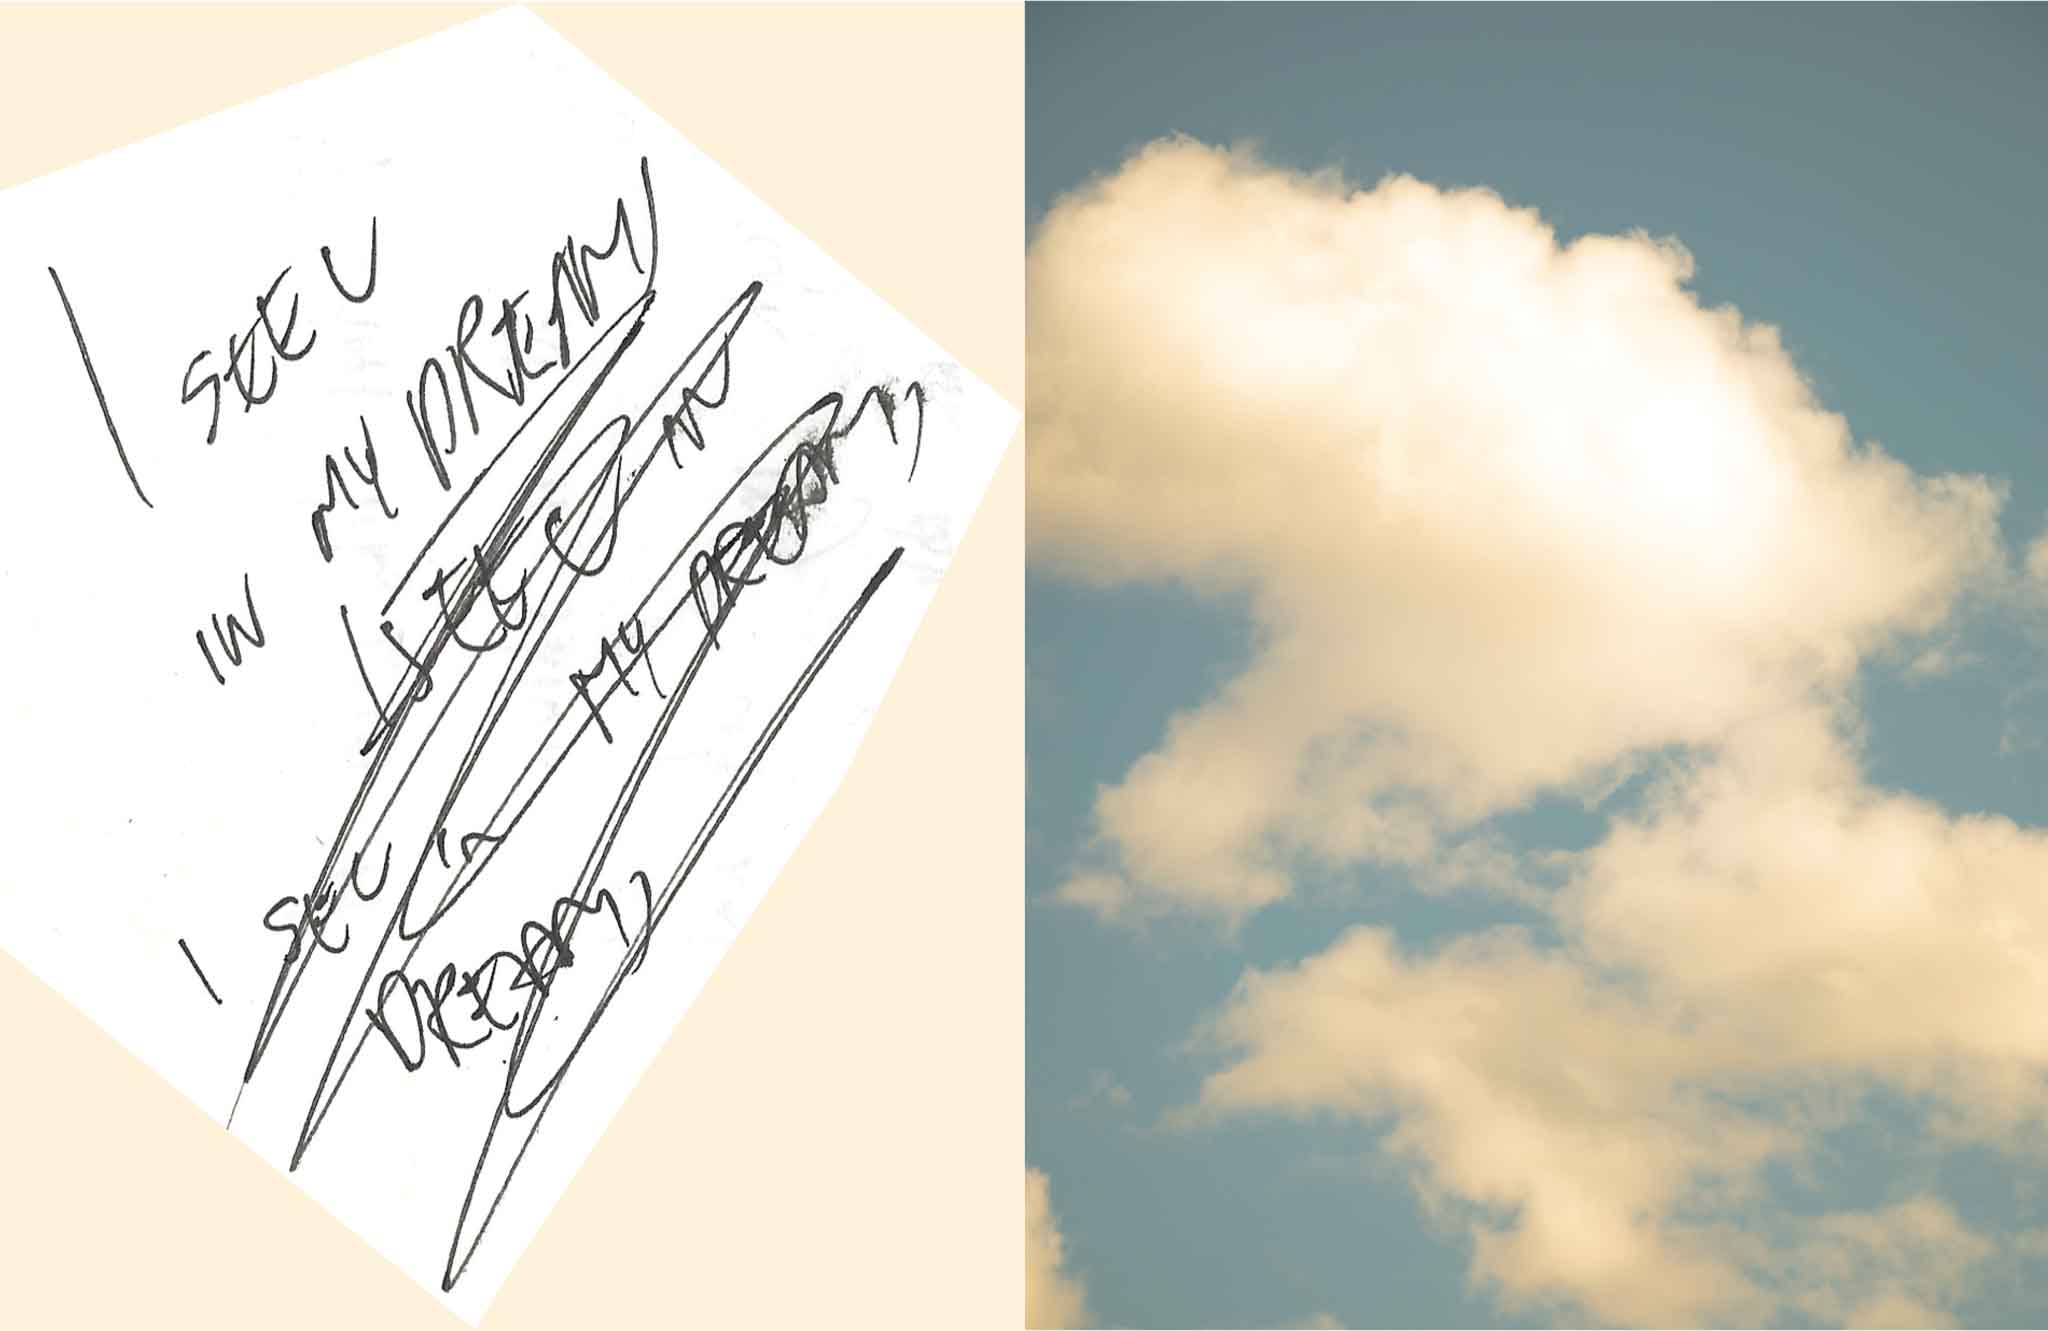 I SEE U
IN MY DREAMS
I SEE U IN
MY DREAMS
I SEE U in
DREAMS